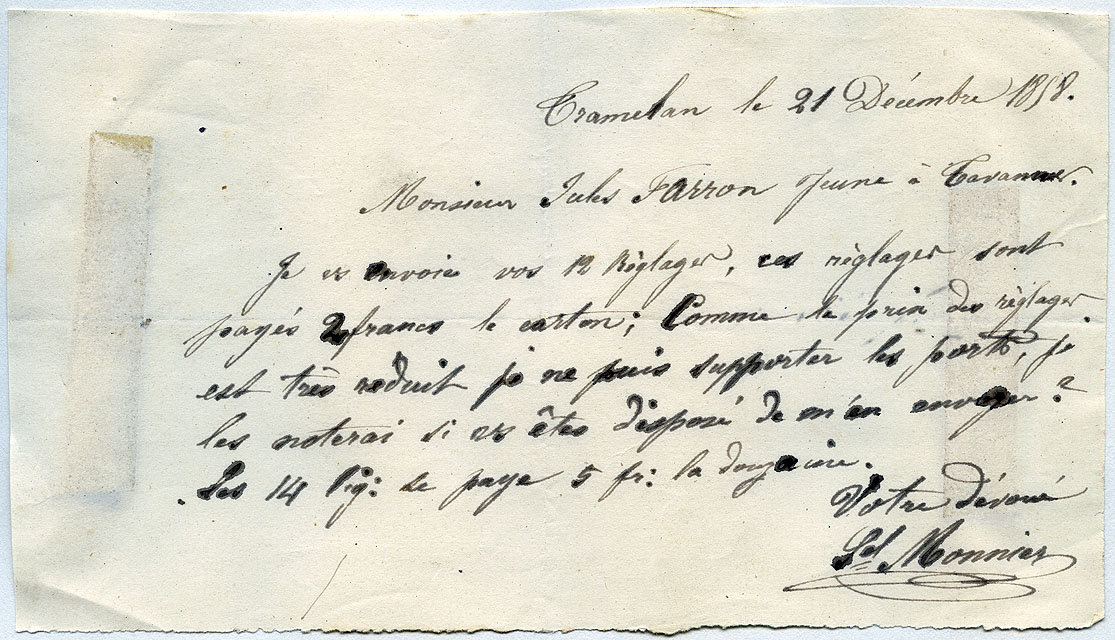 Tramelan le 21 Décembre 1858.
Monsieur Jules Farron Jeune à Tavannes.
Je vs envoie vos 12 Réglages, ces réglages sont
payés 2 francs le carton; Comme le prix des réglages
est très réduit je ne puis supporter les ports, je
les noterai si vs êtes disposé de m'en envoyer?
Les 14 lig: se paye 5 fr: la douzaine.
Votre dévoué
Monnier